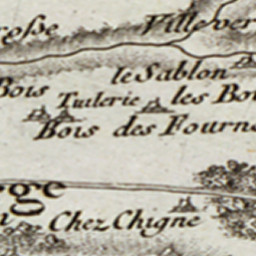 rosse Villever
le Sablon
Bois Tuilerie les Bo
Bois des Fourn
ge
Chez Chigne